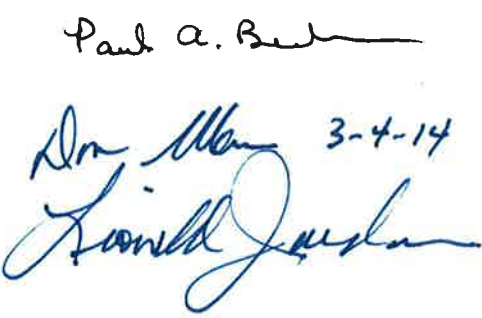 Paul A.
Don 3-4-14
Lioneld Jordan